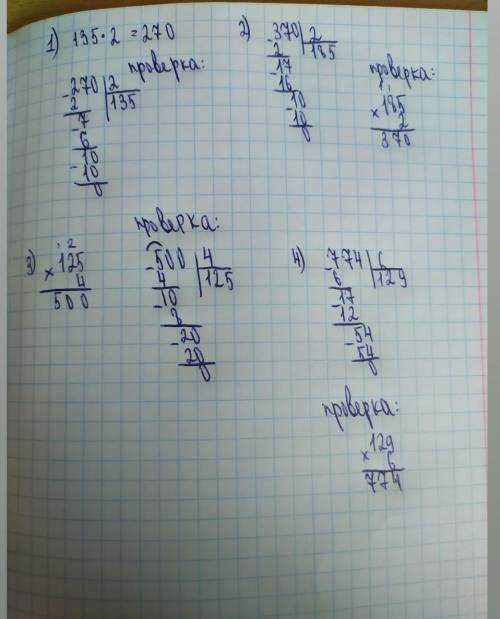 1) 135·2 = 270
проверка:
-270|2
2 |135
-7
6
-10
10
0
2) -370|2
2 |185
-17
16
-10
10
0
проверка:
×185
2
370
3) 2
×125
4
500
проверка:
-500|4
4 |125
-10
8
-20
20
0
4) -774|6
6 |129
-17
12
-54
54
0
проверка:
×129
6
774